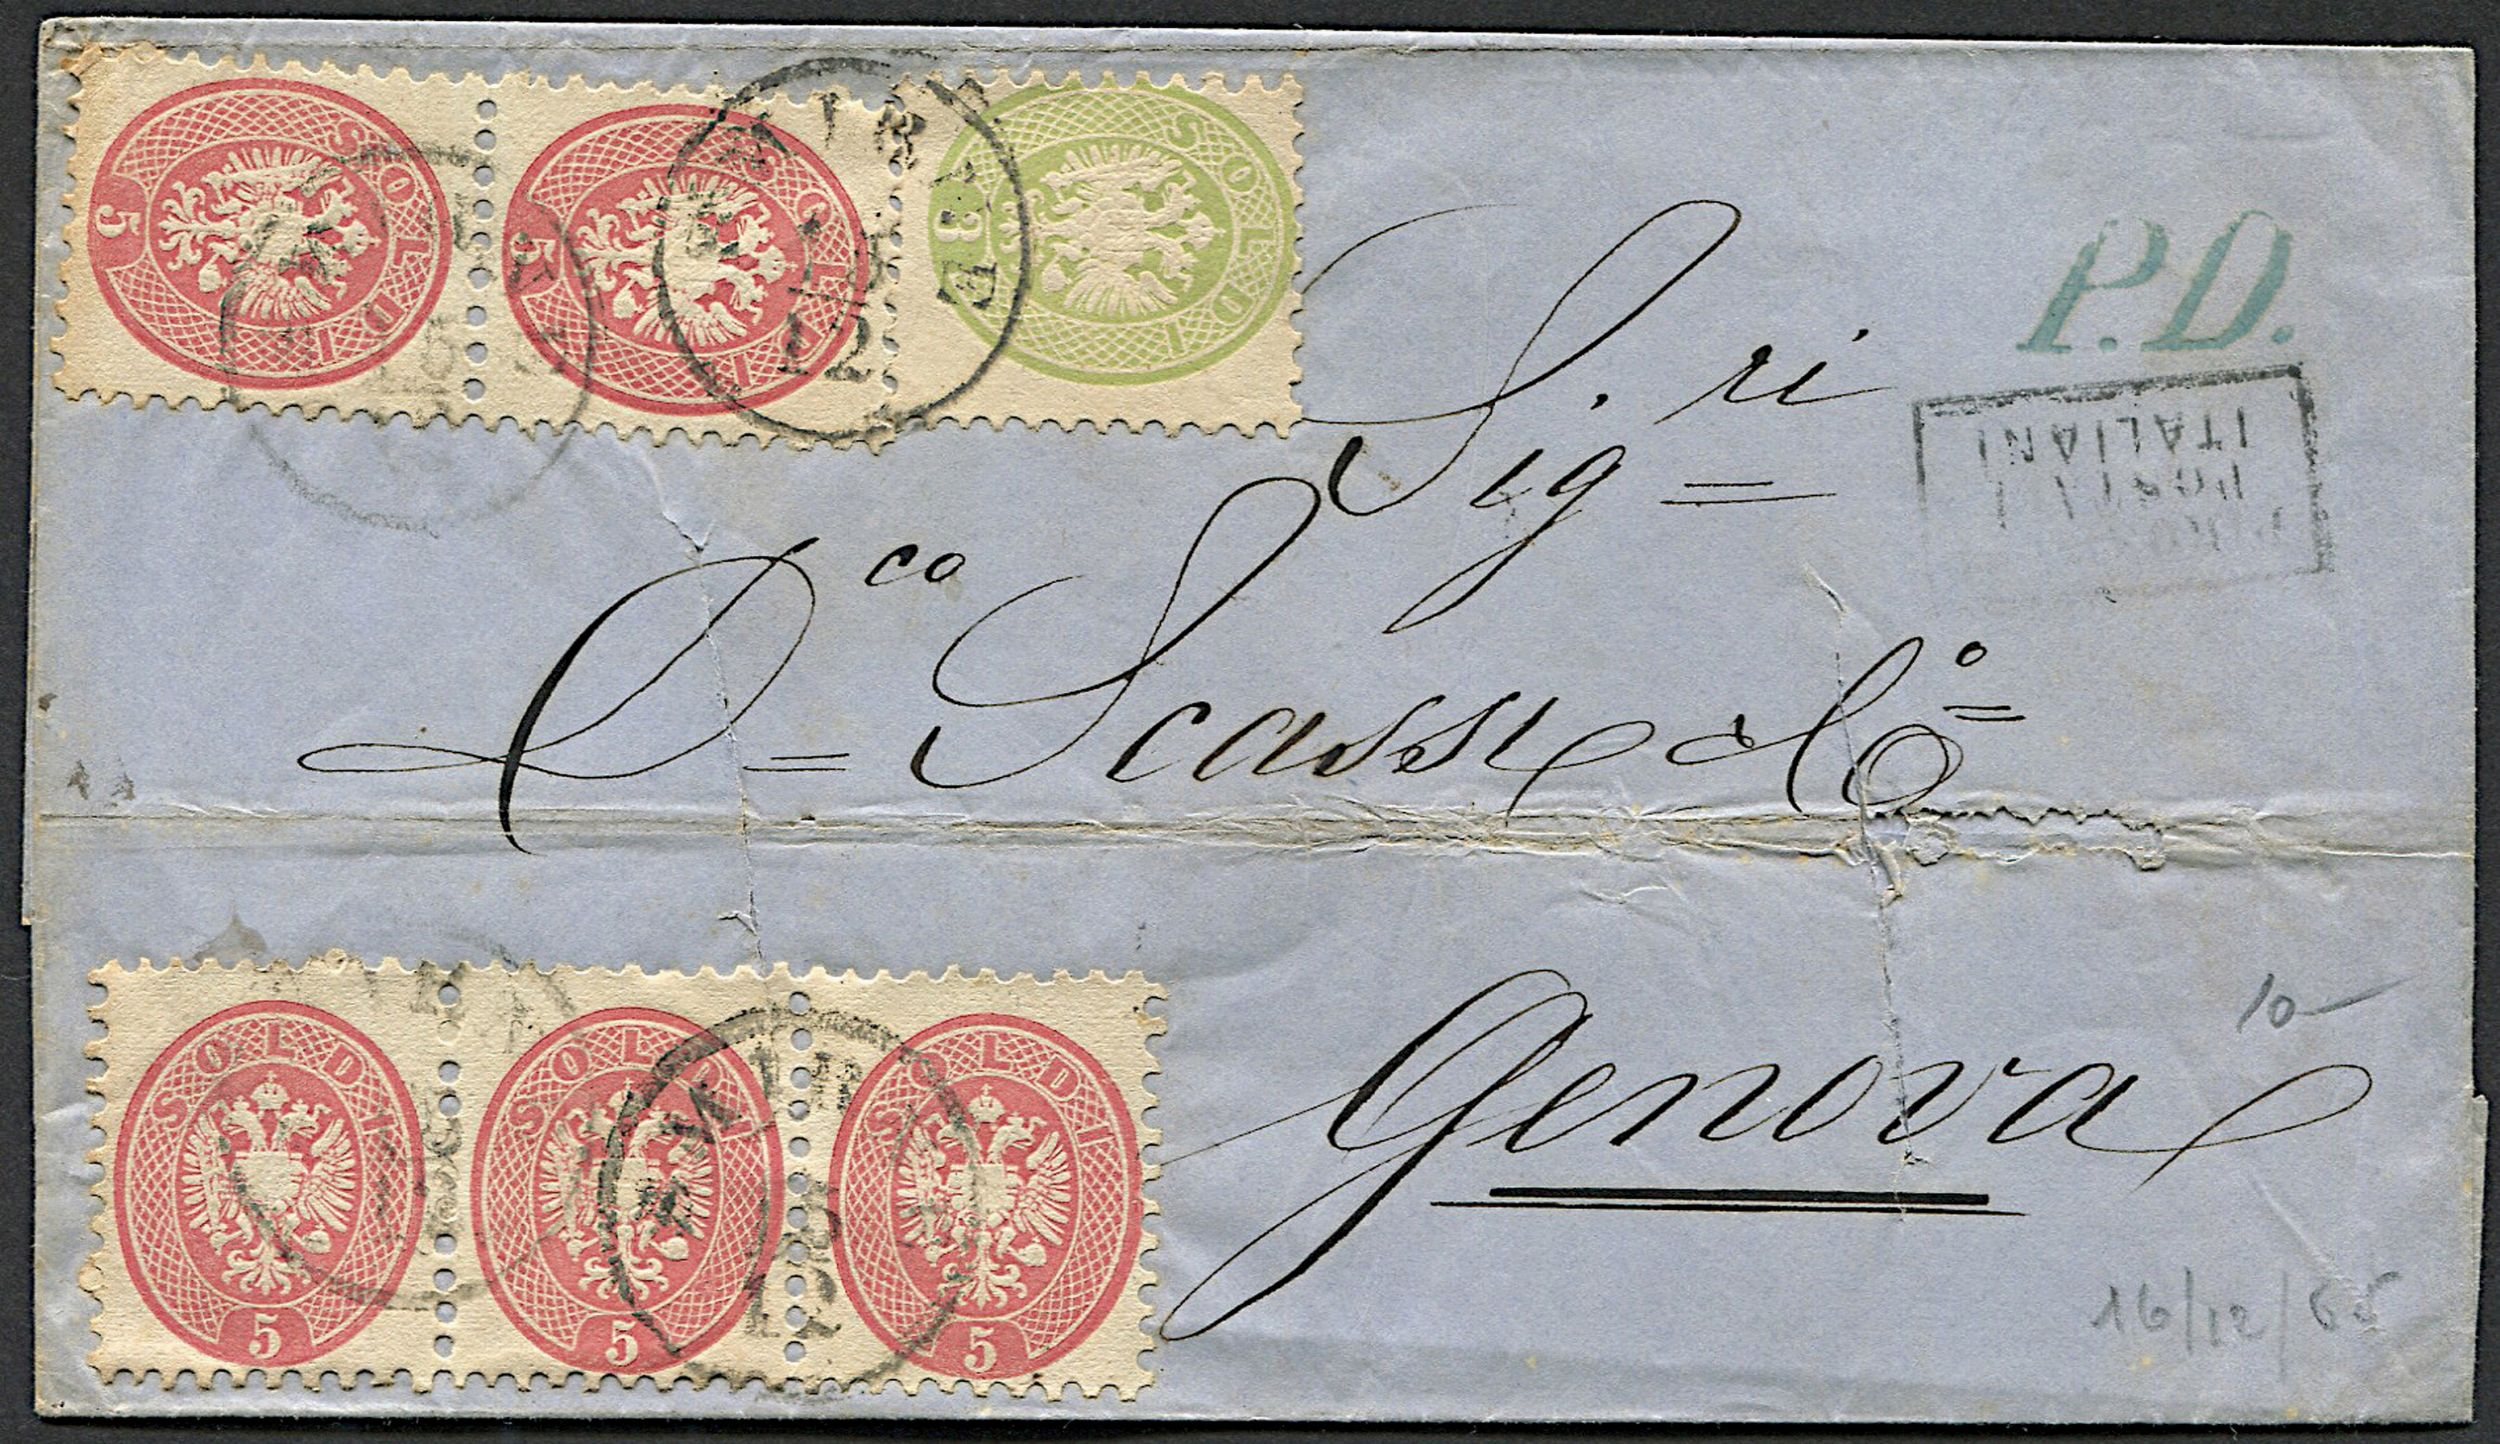 5 SOLDI
5 SOLDI
3 SOLDI
12
P.D.
ITALIANI
Sig.ri
D.co Scassi & Co
Genova
10-
16/12/65
SOLDI 5
SOLDI 5
SOLDI 5
12